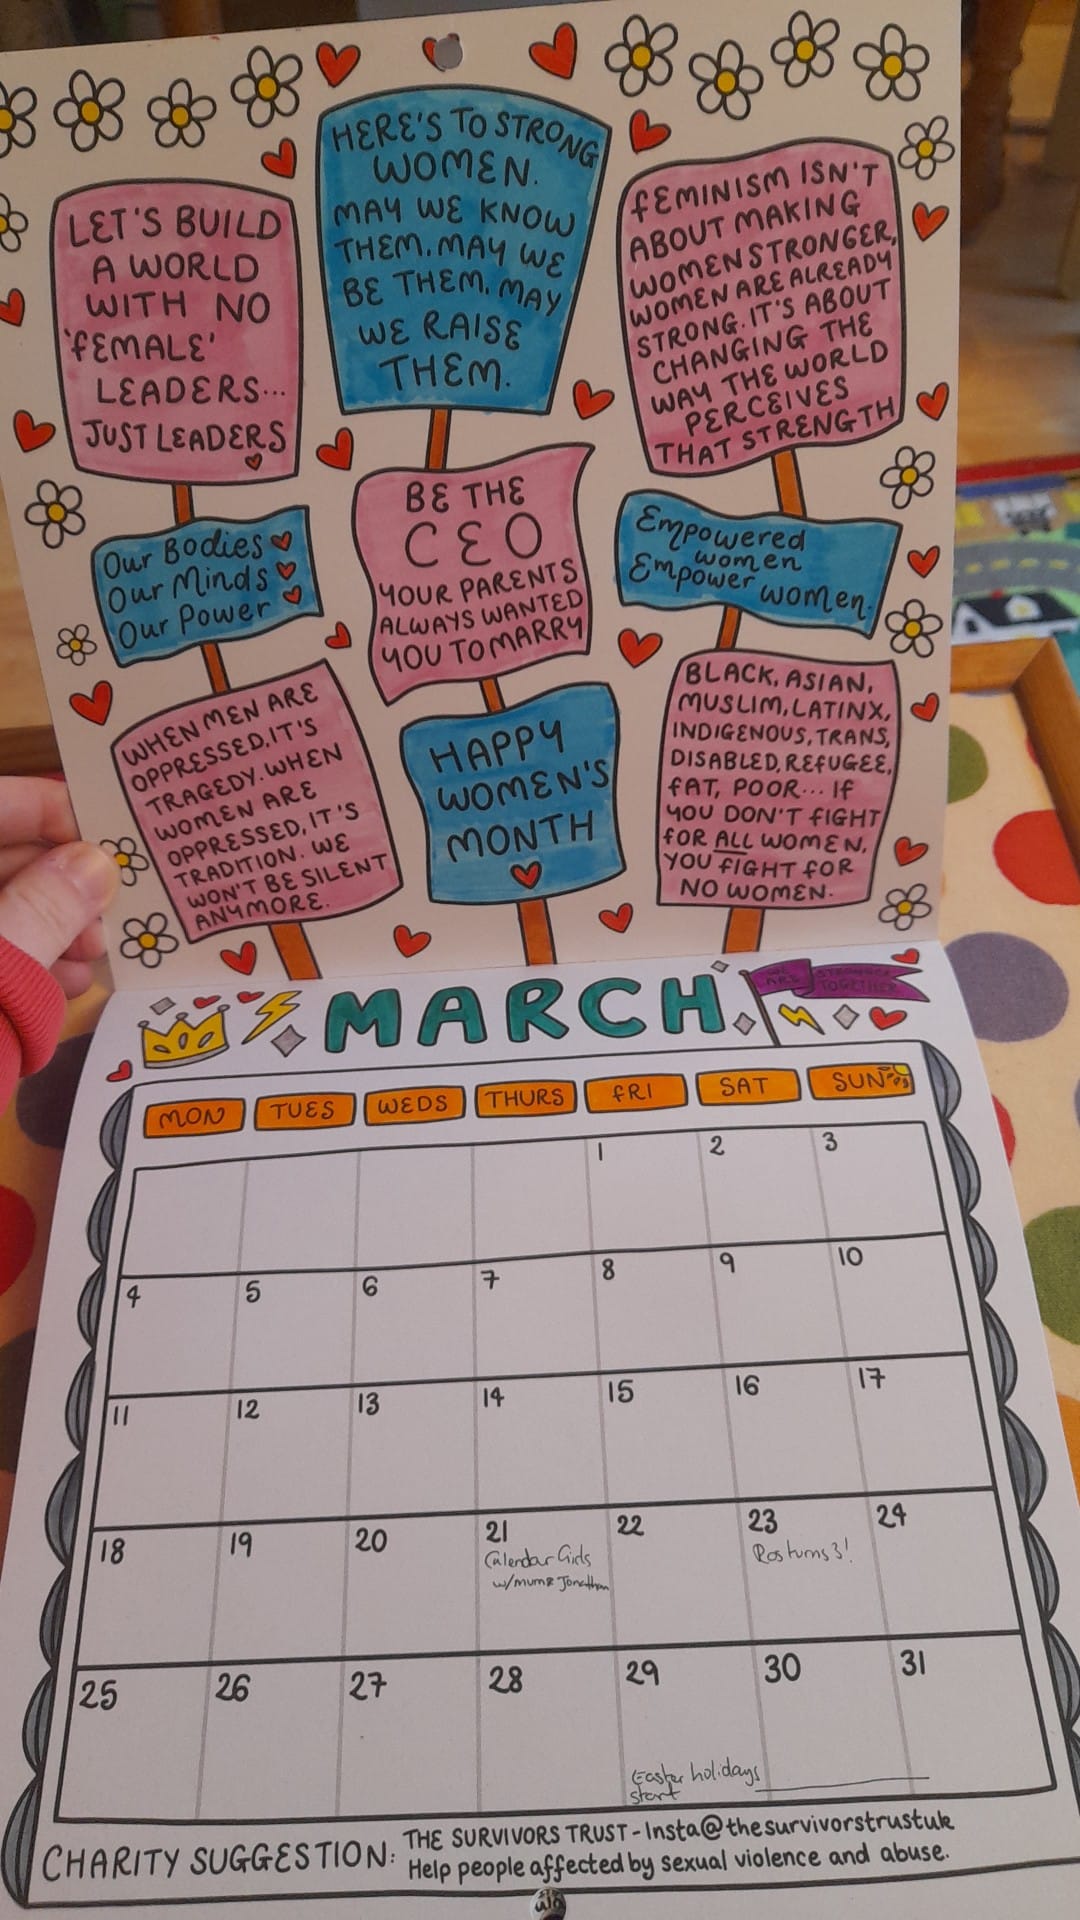 LET'S BUILD
A WORLD
WITH NO
'FEMALE'
LEADERS...
JUST LEADERS
HERE'S TO STRONG
WOMEN.
MAY WE KNOW
THEM. MAY WE
BE THEM. MAY
WE RAISE
THEM.
FEMINISM ISN'T
ABOUT MAKING
WOMEN STRONGER,
WOMEN ARE ALREADY
STRONG. IT'S ABOUT
CHANGING THE
WAY THE WORLD
PERCEIVES
THAT STRENGTH
Our Bodies
Our Minds
Our Power
BE THE
CEO
YOUR PARENTS
ALWAYS WANTED
YOU TO MARRY
Empowered
women
Empower women.
WHEN MEN ARE
OPPRESSED, IT'S
TRAGEDY. WHEN
WOMEN ARE
OPPRESSED, IT'S
TRADITION. WE
WON'T BE SILENT
ANYMORE.
HAPPY
WOMEN'S
MONTH
BLACK, ASIAN,
MUSLIM, LATINX,
INDIGENOUS, TRANS,
DISABLED, REFUGEE,
FAT, POOR... IF
YOU DON'T FIGHT
FOR ALL WOMEN,
YOU FIGHT FOR
NO WOMEN.
MARCH
WE ARE STRONGER
TOGETHER
MON TUES WEDS THURS FRI SAT SUN
1 2 3
4 5 6 7 8 9 10
11 12 13 14 15 16 17
18 19 20 21 22 23 24
Calendar Girls
w/mum & Jonathan
Ros turns 3!
25 26 27 28 29 30 31
Easter holidays
start
CHARITY SUGGESTION: THE SURVIVORS TRUST - Insta@thesurvivorstrustuk
Help people affected by sexual violence and abuse.